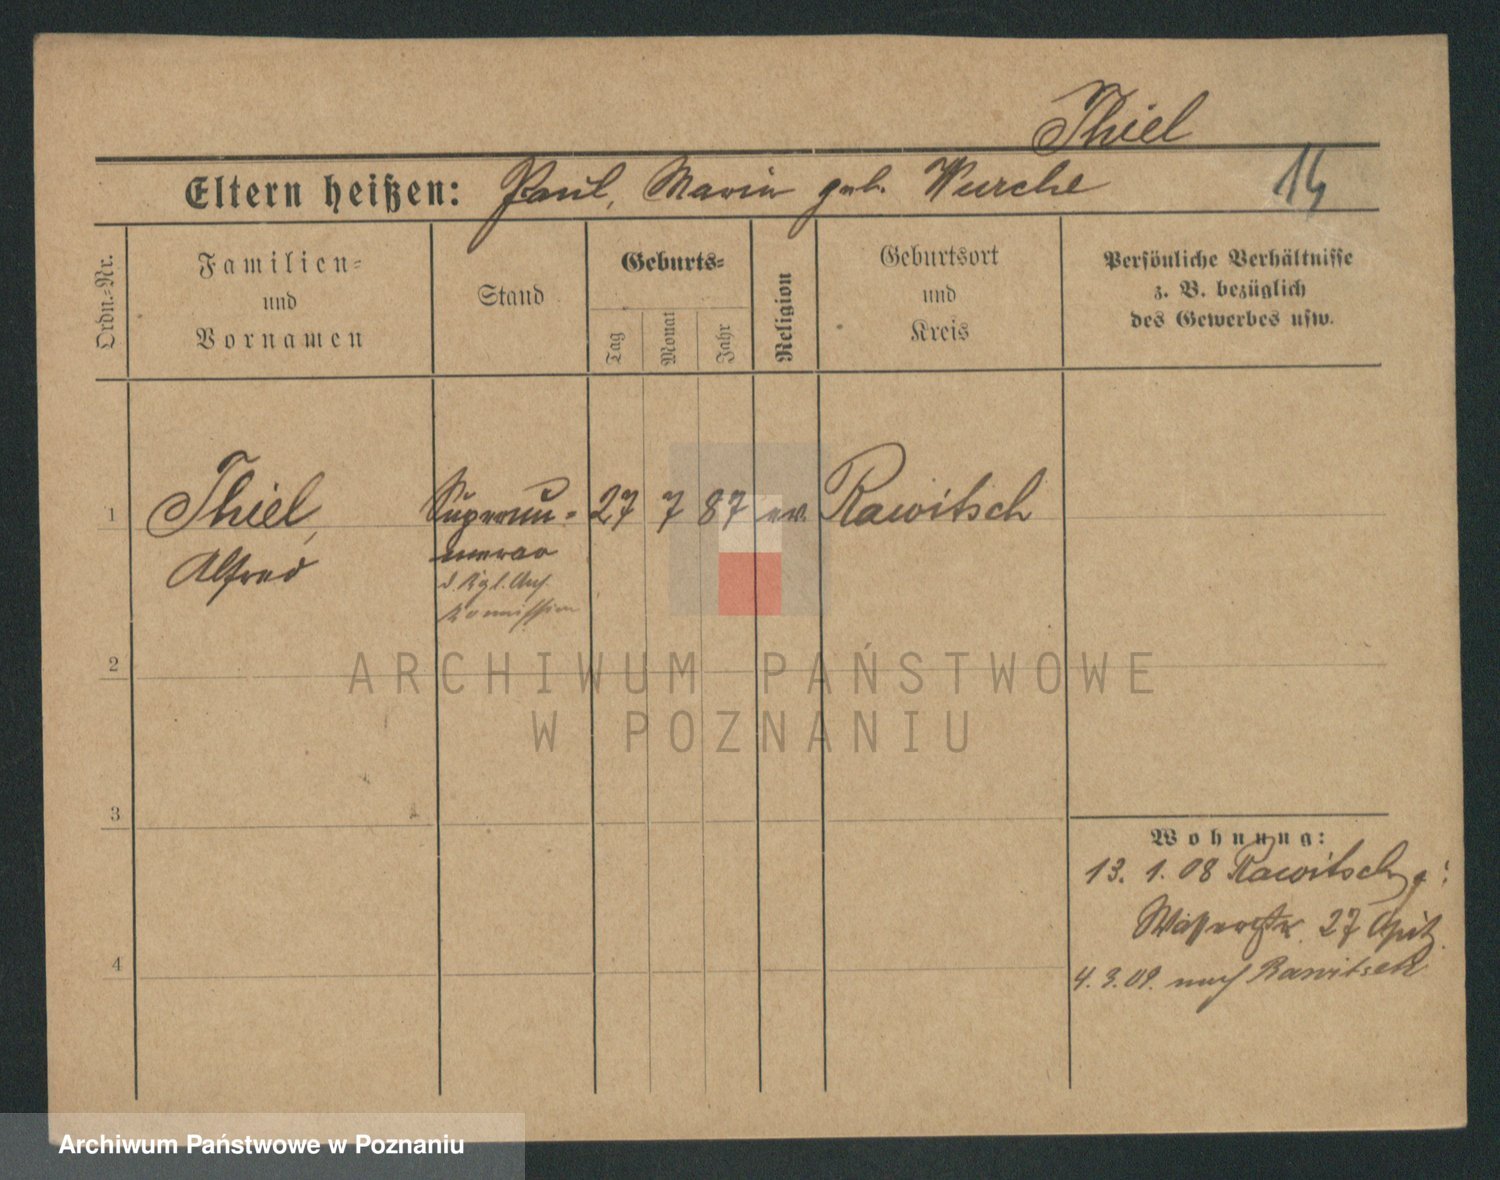 Thiel
Eltern heißen: Paul, Maria geb. Wurche 14
Ordn.-Nr.
Familien-
und
Vornamen
Stand
Geburts-
Tag
Monat
Jahr
Religion
Geburtsort
und
Kreis
Persönliche Verhältnisse
z. B. bezüglich
des Gewerbes usw.
1 Thiel, Supernu- 27 7 87 ev. Rawitsch
Alfred merar
d. Kgl. Ans.
Kommission
2
ARCHIWUM PAŃSTWOWE
W POZNANIU
3
Wohnung:
13. 1. 08 Rawitsch
27
4
4. 3. 09. nach Rawitsch
Archiwum Państwowe w Poznaniu